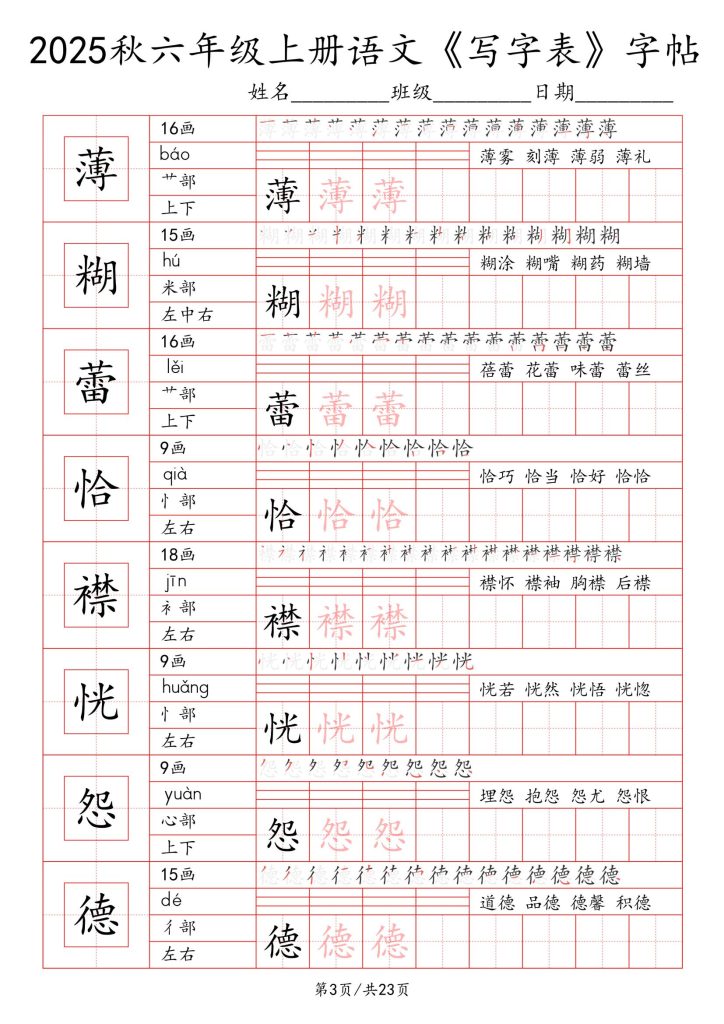 2025秋六年级上册语文《写字表》字帖
姓名__________班级__________日期__________
薄
16画
báo
艹部
上下
薄雾 刻薄 薄弱 薄礼
薄 薄 薄
糊
15画
hú
米部
左中右
糊涂 糊嘴 糊药 糊墙
糊 糊 糊
蕾
16画
lěi
艹部
上下
蓓蕾 花蕾 味蕾 蕾丝
蕾 蕾 蕾
恰
9画
qià
忄部
左右
恰巧 恰当 恰好 恰恰
恰 恰 恰
襟
18画
jīn
衤部
左右
襟怀 襟袖 胸襟 后襟
襟 襟 襟
恍
9画
huǎng
忄部
左右
恍若 恍然 恍悟 恍惚
恍 恍 恍
怨
9画
yuàn
心部
上下
埋怨 抱怨 怨尤 怨恨
怨 怨 怨
德
15画
dé
彳部
左右
道德 品德 德馨 积德
德 德 德
第3页/共23页